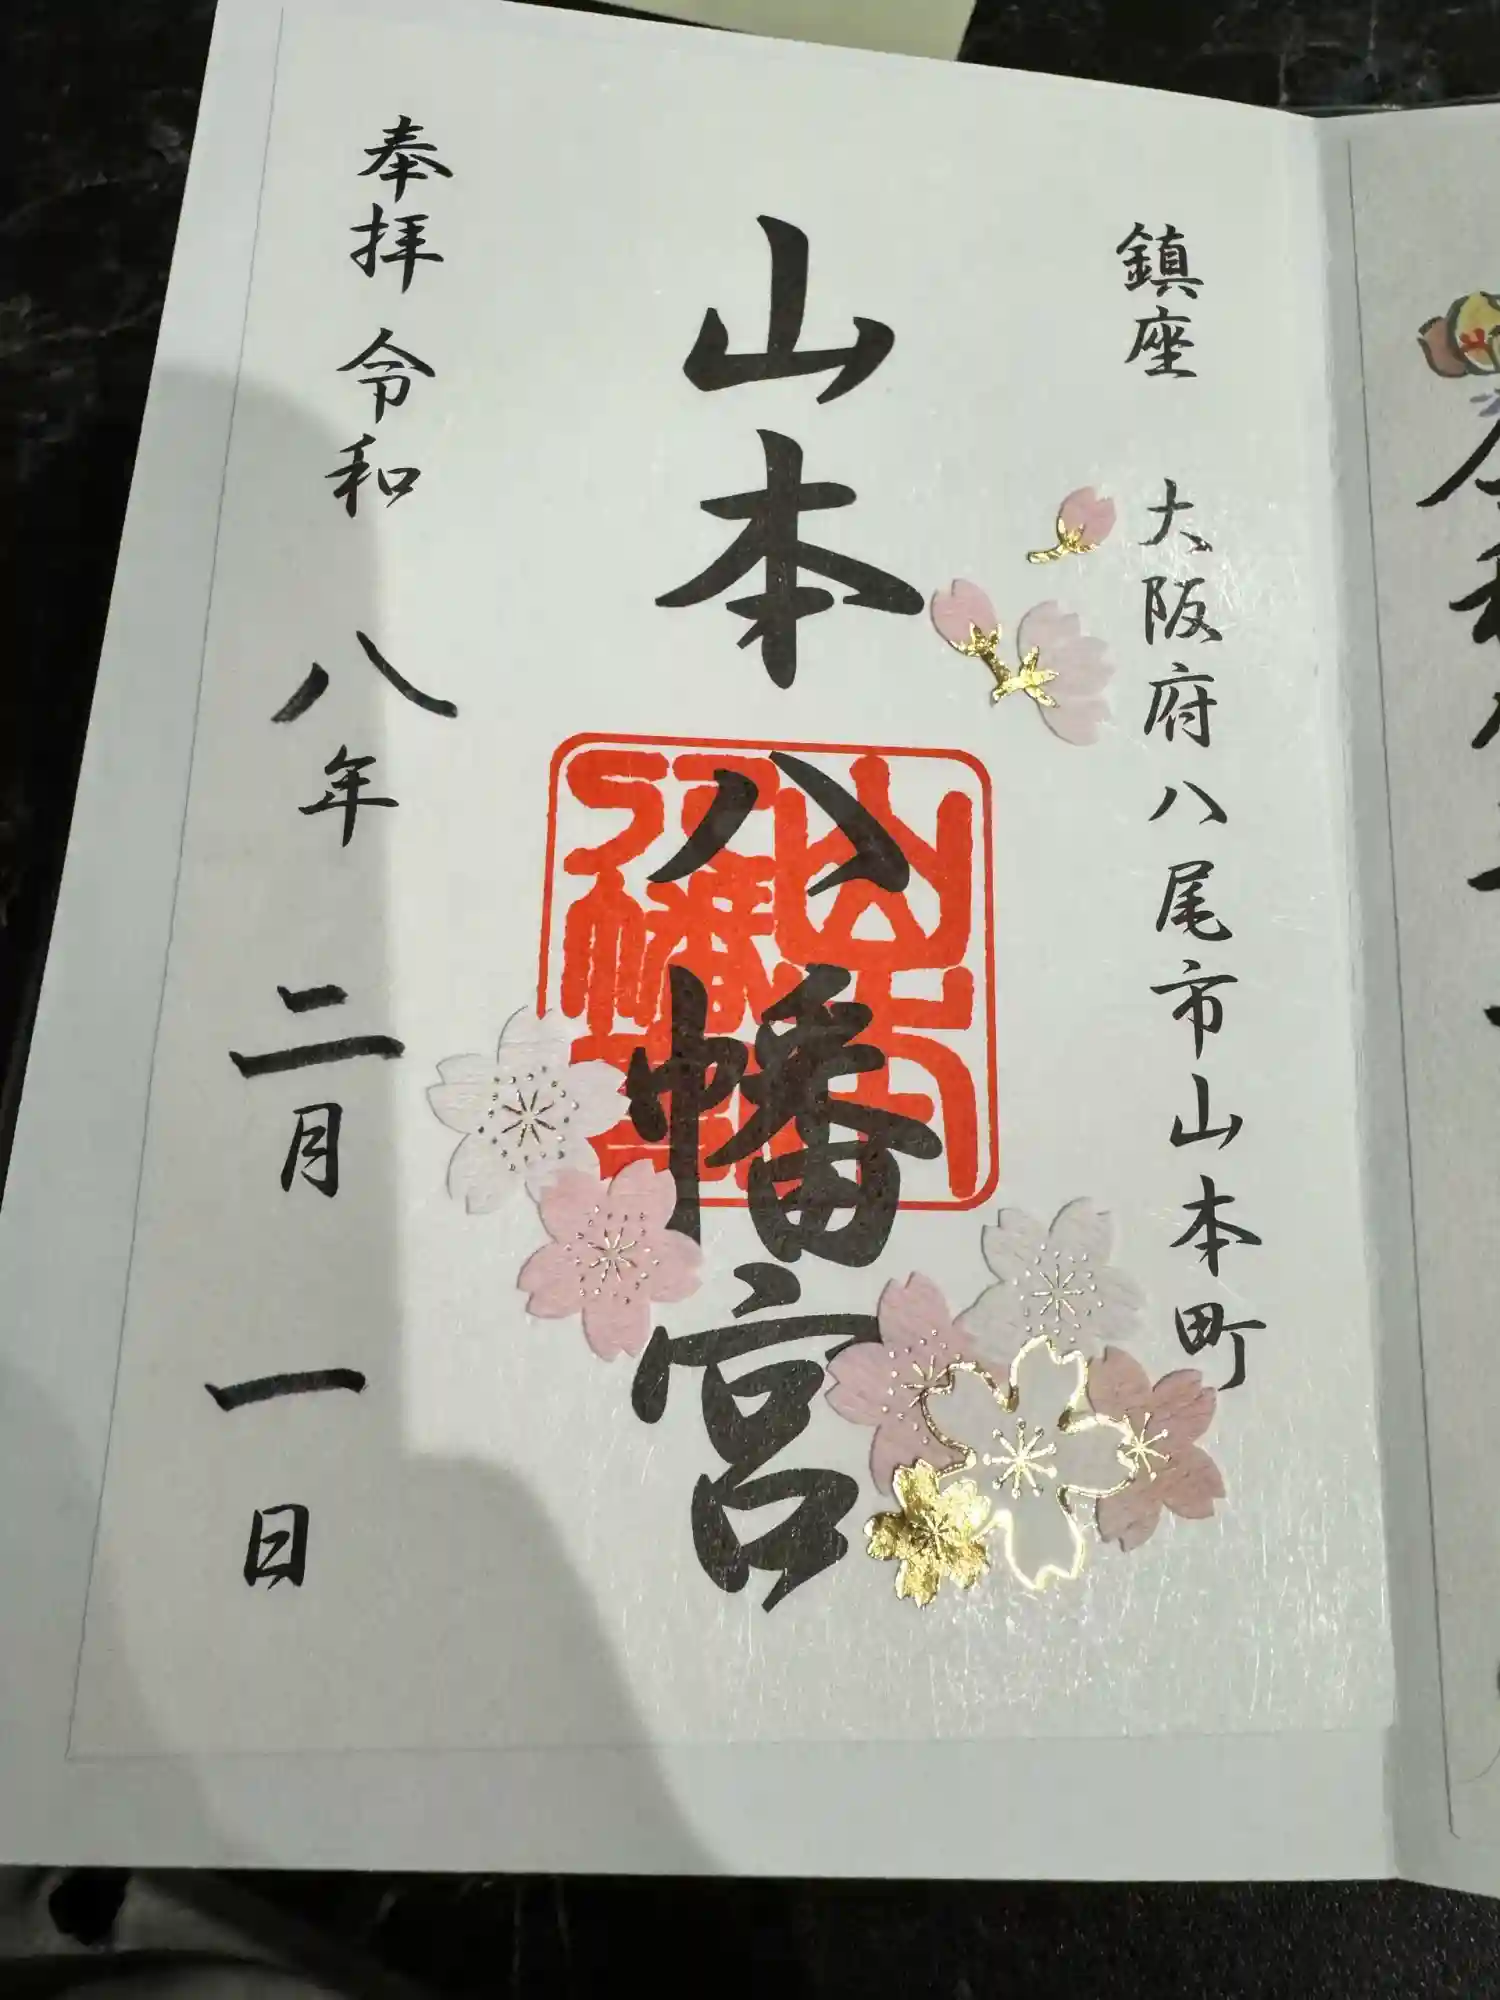 鎮座 大阪府八尾市山本町
山本八幡宮
山本
八幡宮
奉拝 令和 八年 二月 一日